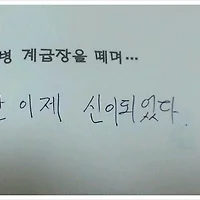 병 계급장을 떼며...
이제 신이되었다.